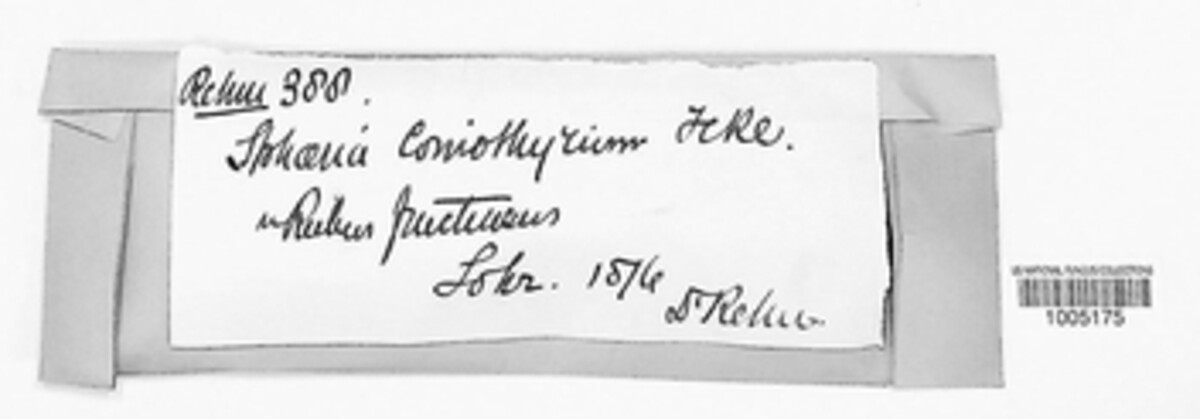 Rehm 388.
Sphæria Coniothyrium Fckl.
Rubus fruticosus
Lohr. 1876
Dr Rehm.
US NATIONAL FUNGUS COLLECTIONS
1005175